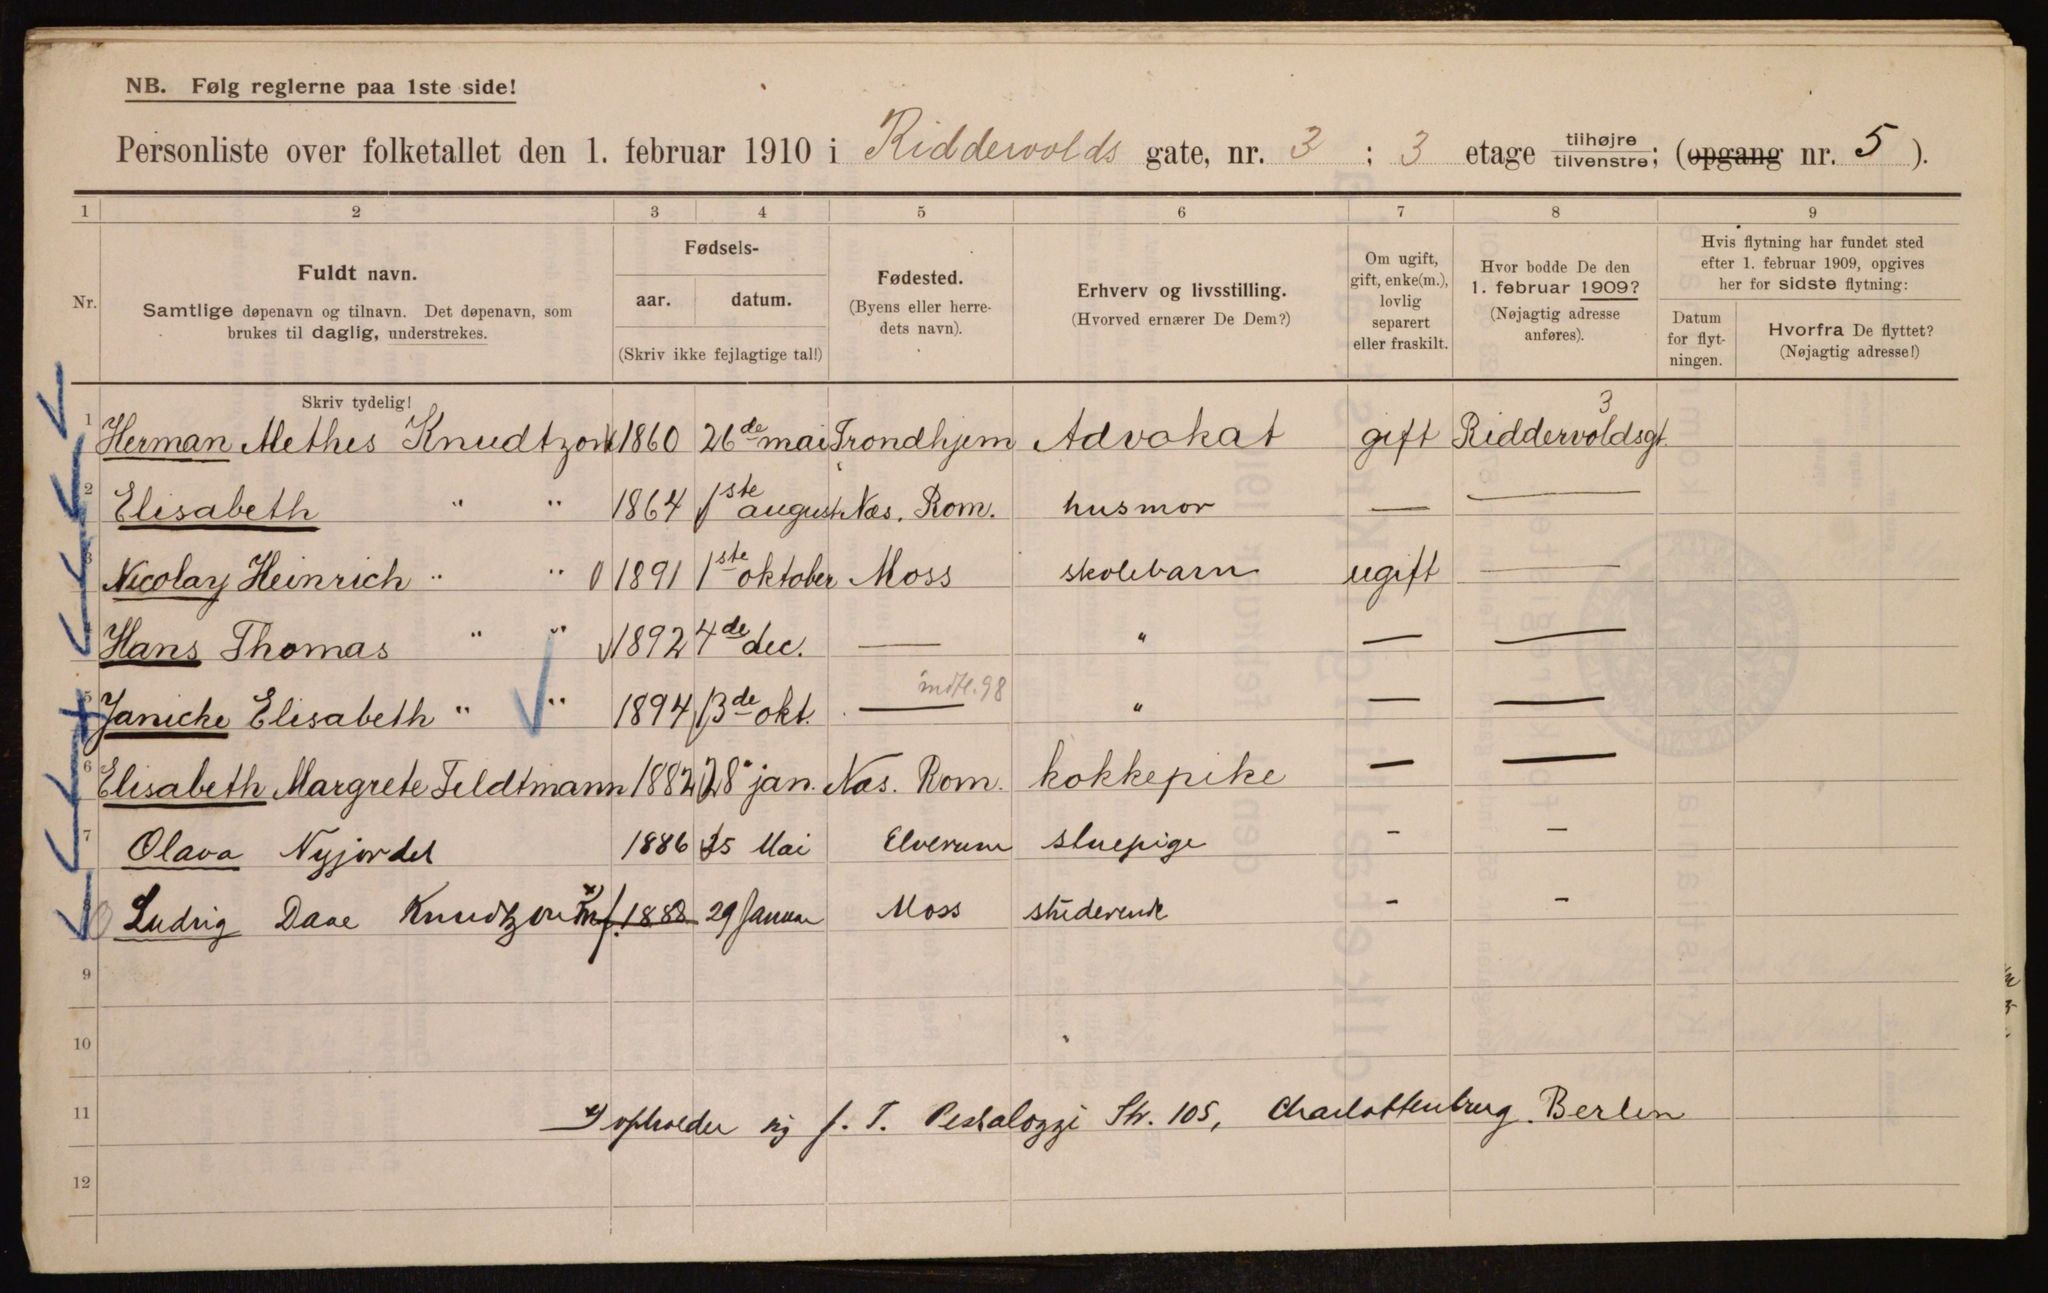 NB. Følg reglerne paa 1ste side!
Personliste over folketallet den 1. februar 1910 i Riddervolds gate, nr. 3 ; 3 etage tilhøjre/tilvenstre; (opgang nr. 5 ).
1 2 3 4 5 6 7 8 9
Nr.
Fuldt navn.
Samtlige døpenavn og tilnavn. Det døpenavn, som
brukes til daglig, understrekes.
Fødsels-
aar. datum.
(Skriv ikke fejlagtige tal!)
Fødested.
(Byens eller herre-
dets navn).
Erhverv og livsstilling.
(Hvorved ernærer De Dem?)
Om ugift,
gift, enke(m.),
lovlig
separert
eller fraskilt.
Hvor bodde De den
1. februar 1909?
(Nøjagtig adresse
anføres).
Hvis flytning har fundet sted
efter 1. februar 1909, opgives
her for sidste flytning:
Datum
for flyt-
ningen.
Hvorfra De flyttet?
(Nøjagtig adresse!)
Skriv tydelig!
1 Herman Methes Knudtzon 1860 26de mai Trondhjem Advokat gift Riddervoldsgt. 3
2 Elisabeth " " 1864 1ste august Næs. Rom. husmor — —
3 Nicolay Heinrich " " 1891 1ste oktober Moss skolebarn ugift —
4 Hans Thomas " " 1892 4de dec. — " — —
5 Janicke Elisabeth " " 1894 13de okt. — indfl. 98 " — —
6 Elisabeth Margrete Feldtmann 1882 28 jan. Næs. Rom. kokkepike — —
7 Olava Nyjordet 1886 25 Mai Elverum stuepige - -
8 Ludvig Daae Knudtzon x) mf. 1888 29 Januar Moss studerende - -
9
10
11 x) opholder sig f. T. Pestalozzi Str. 105, Charlottenburg. Berlin
12